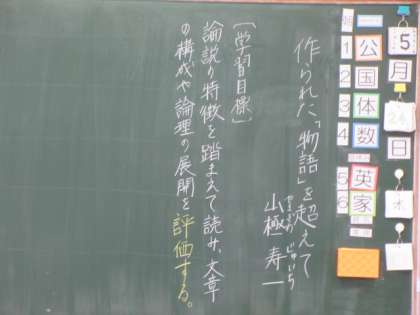 5
月
日
水
1 公
2 国
3 体
4 数
5 英
6 家
作られた「物語」を超えて
山極寿一
やまぎわ じゅいち
[学習目標]
論説の特徴を踏まえて読み、文章
の構成や論理の展開を評価する。